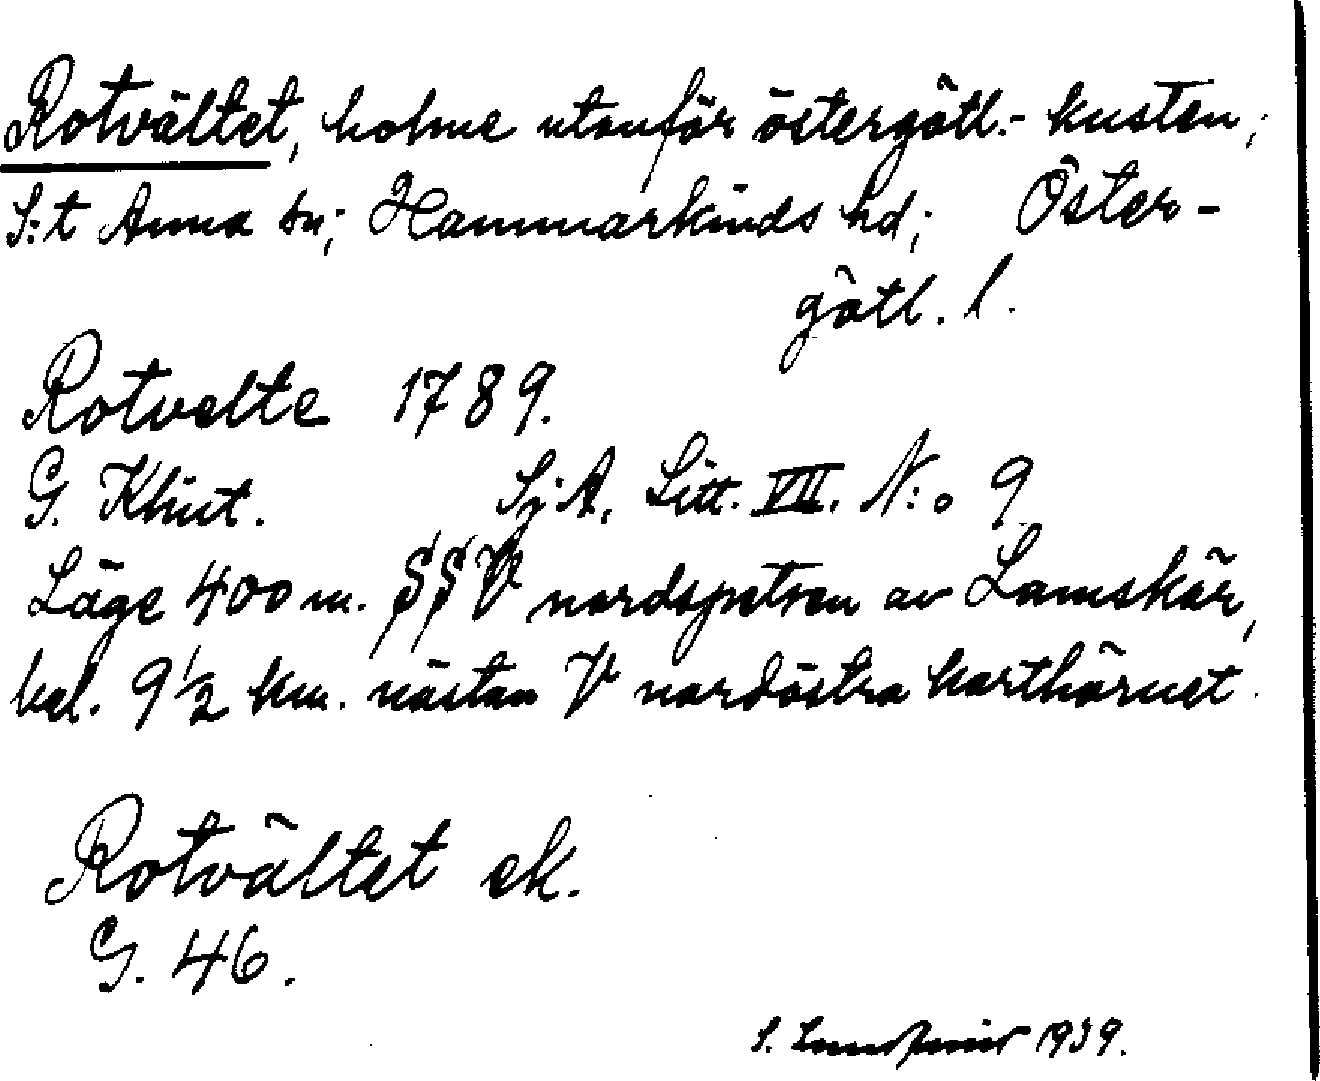 Rotvältet, holme utanför östergötl.- kusten;
S:t Anna sn; Hammarkinds hd; Öster-
götl. l.
Rotvelte 1789.
G. Klint. SjA. Litt. VII. N:o 9
Läge 400 m. SSV nordspetsen av Lamskär,
bel. 9 1/2 km. nästan V nordöstra karthörnet.
Rotvältet ek.
G. 46.
S. 1939.